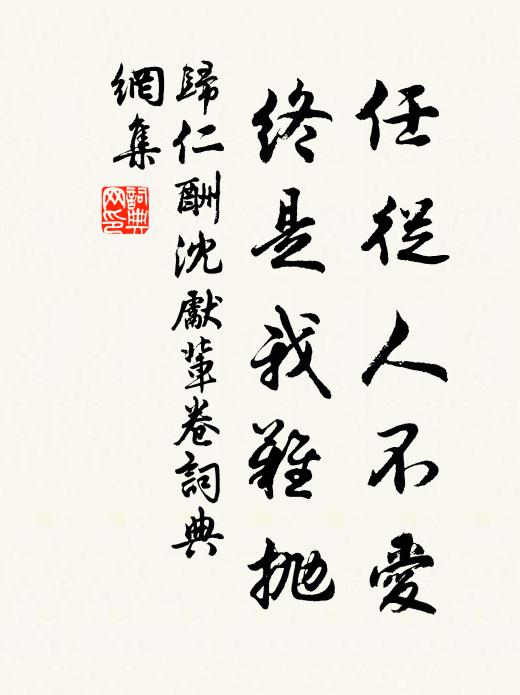 任從人不愛
終是我難拋
歸仁酬沈獻軰卷詞典
網集
詞典网印